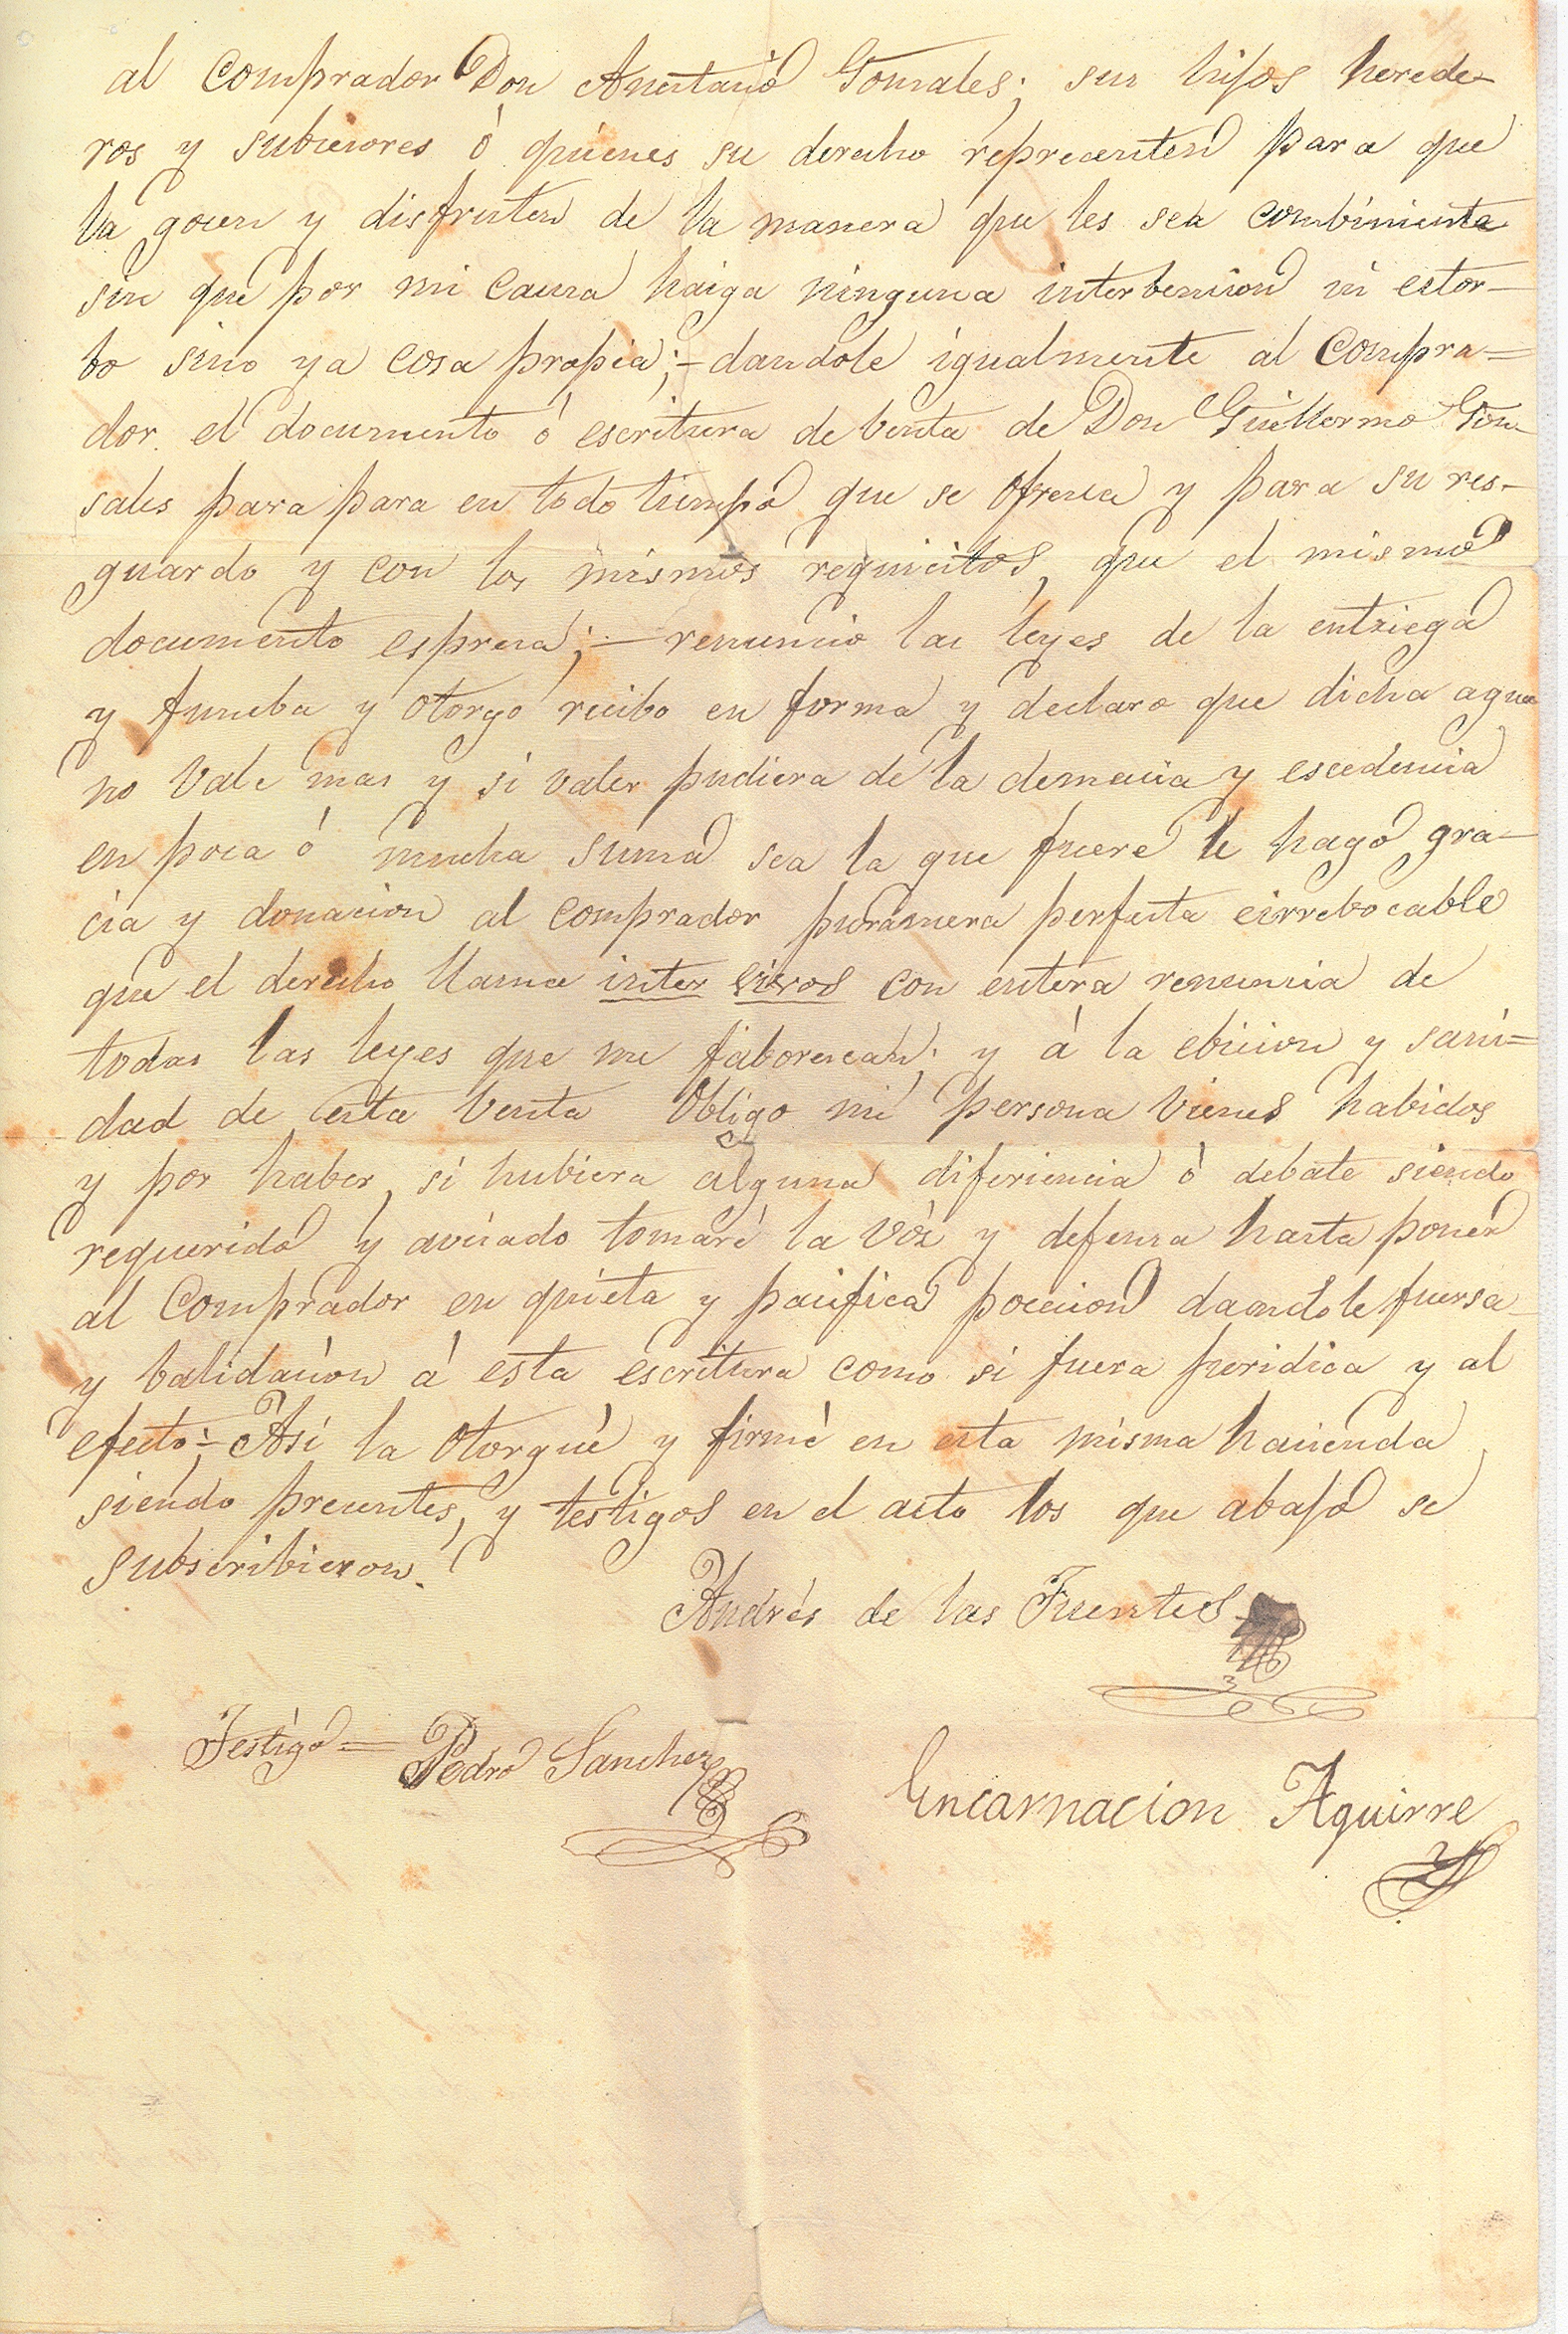 al comprador Don Anastacio Gonsales; sus hijos herede-
ros y subcesores ó quienes su derecho represcenten para que
la gosen y disfruten de la manera que les sea combiniente
sin que por mi causa haiga ninguna interbencion ni estor-
bo sino ya cosa propia;- dandole igualmente al Compra=
dor el documento ó escritura de benta de Don Guillermo Gon-
sales para para en todo tiempo que se ofresca y para su res-
guardo y con los mismos requicitos, que el mismo
documento espresa;- renuncio las leyes de la entriega
y prueba y otorgo recibo en forma y declaro que dicha agua
no vale mas y si valer pudiera de la demacia y escedencia
en poca ó mucha suma sea la que fuere le hago gra-
cia y donacion al comprador puramera perfecta eirrebocable
que el derecho llama inter vivos con entera renuncia de
todas las leyes que me faborescan; y á la ebicion y sani=
dad de esta benta obligo mi persona vienes habidos
y por haber, si hubiera alguna diferiencia ó debate siendo
requerido y avisado tomaré la vóz y defensa hasta poner
al Comprador en quieta y pacifica poccicion dandole fuersa
y balidacion á esta escritura como si fuera juridica y al
efecto;- Asi la otorgué y firmé en esta misma hacienda,
siendo precentes, y testigos en el acto los que abajo se
subscribieron.
Andrés de las Fuentes
Testigo= Pedro Sanchez
Encarnacion Aguirre